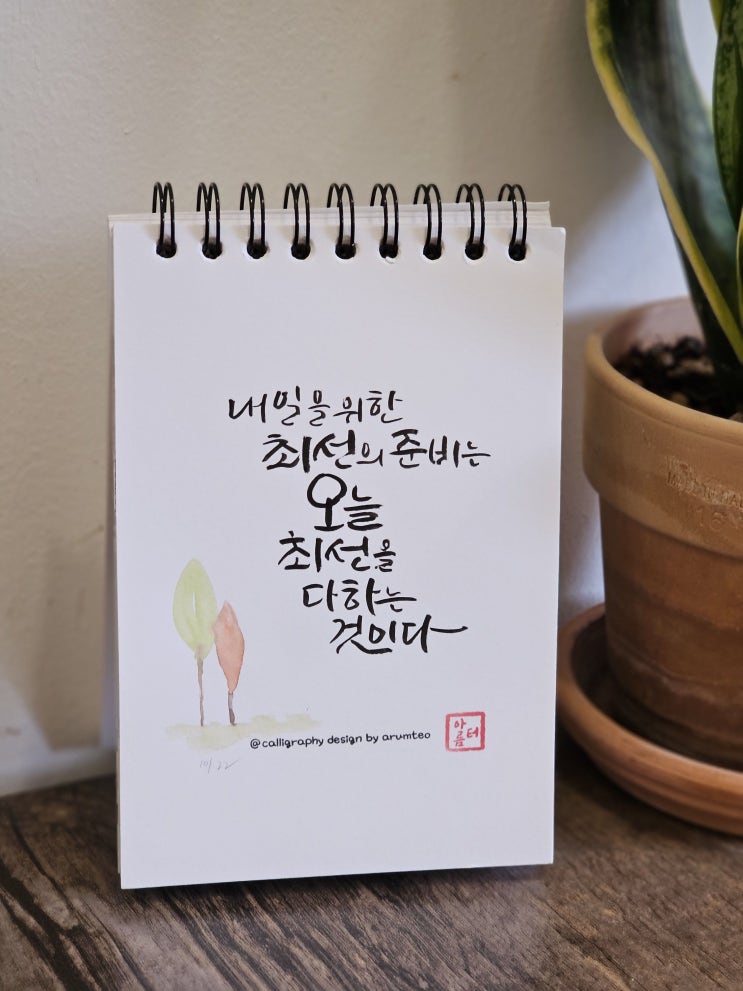 내일을위한
최선의 준비는
오늘
최선을
다하는
것이다
@calligraphy design by arumteo
아름터
10/22